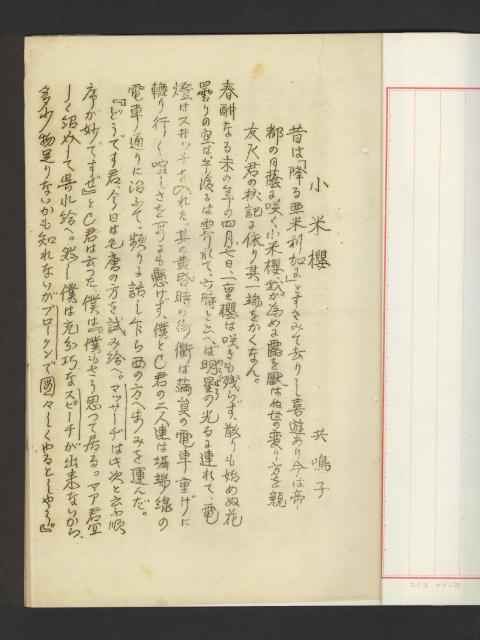 小米櫻
共鳴子
昔は「降る亜米利加に」とすさみて去りし喜遊あり今は帝
都の日蔭に咲く小米櫻我が為めに露を厭はぬ世の変り方を親
友尺君の秋記に依り其一端をかくなん。
春酣なる未の年の四月七日、一重櫻は咲きも残らず、散りも始めぬ花
曇りの空は半ば晴れて、六時と云へば明星の光るに連れて、電
燈はスヰッチを入れた。其の黄昏時の街衢は満員の電車重げに
轢り行く喧しさを耳にも懸けず、僕とC君の二人連は堀端線の
電車通りに沿ふて、頻りに話し乍ら西の方へ歩みを運んだ。
『どうです君、今日は毛唐の方を試み給へ。マッサーヂは其次と云ふ順
序が妙ですぜ』とC君は云つた。僕は『僕もさう思つて居る。マア君宜
しく紹介して呉れ給へ。然し僕は充分巧なスピーチが出来ないから、
多少物足りないかも知れないがブロークンで図々しくやるとしやう。』
コクヨ ケイ-20